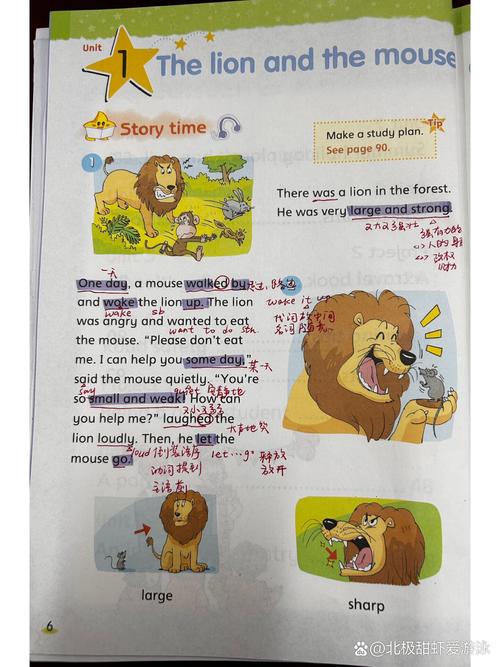 Unit
1
The lion and the mouse
Story time
Tip
Make a study plan.
See page 90.
1
There was a lion in the forest.
He was very large and strong.
又大又强壮
One day, a mouse walked by
一天
and woke the lion up. The lion
wake
sb
wake it up
was angry and wanted to eat
want to do sth
the mouse. "Please don't eat
me. I can help you some day,"
某天
said the mouse quietly. "You're
say
so small and weak! How can
又小又弱
you help me?" laughed the
大声地笑
lion loudly. Then, he let the
loud
mouse go.
let...go
释放
放开
large
sharp
6
知乎 @北极甜虾爱游泳